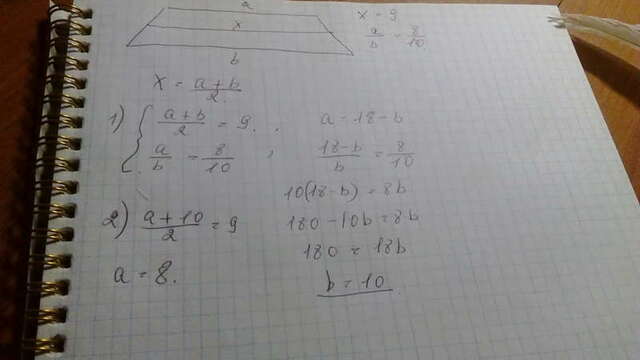 a
x
b
x - 9
a/b - 8/10
x = a+b/2
1) { a+b/2 = 9.
a/b = 8/10 ;
a - 18 - b
18-b/b = 8/10
10(18-b) = 8b
180 - 10b = 8b
180 = 18b
b = 10
2) a+10/2 = 9
a = 8.